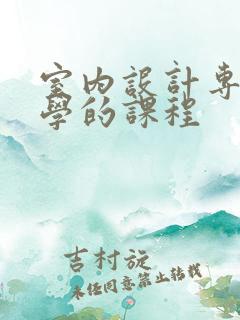 室内設計專
學的課程
吉村旋
未經同意禁止轉載